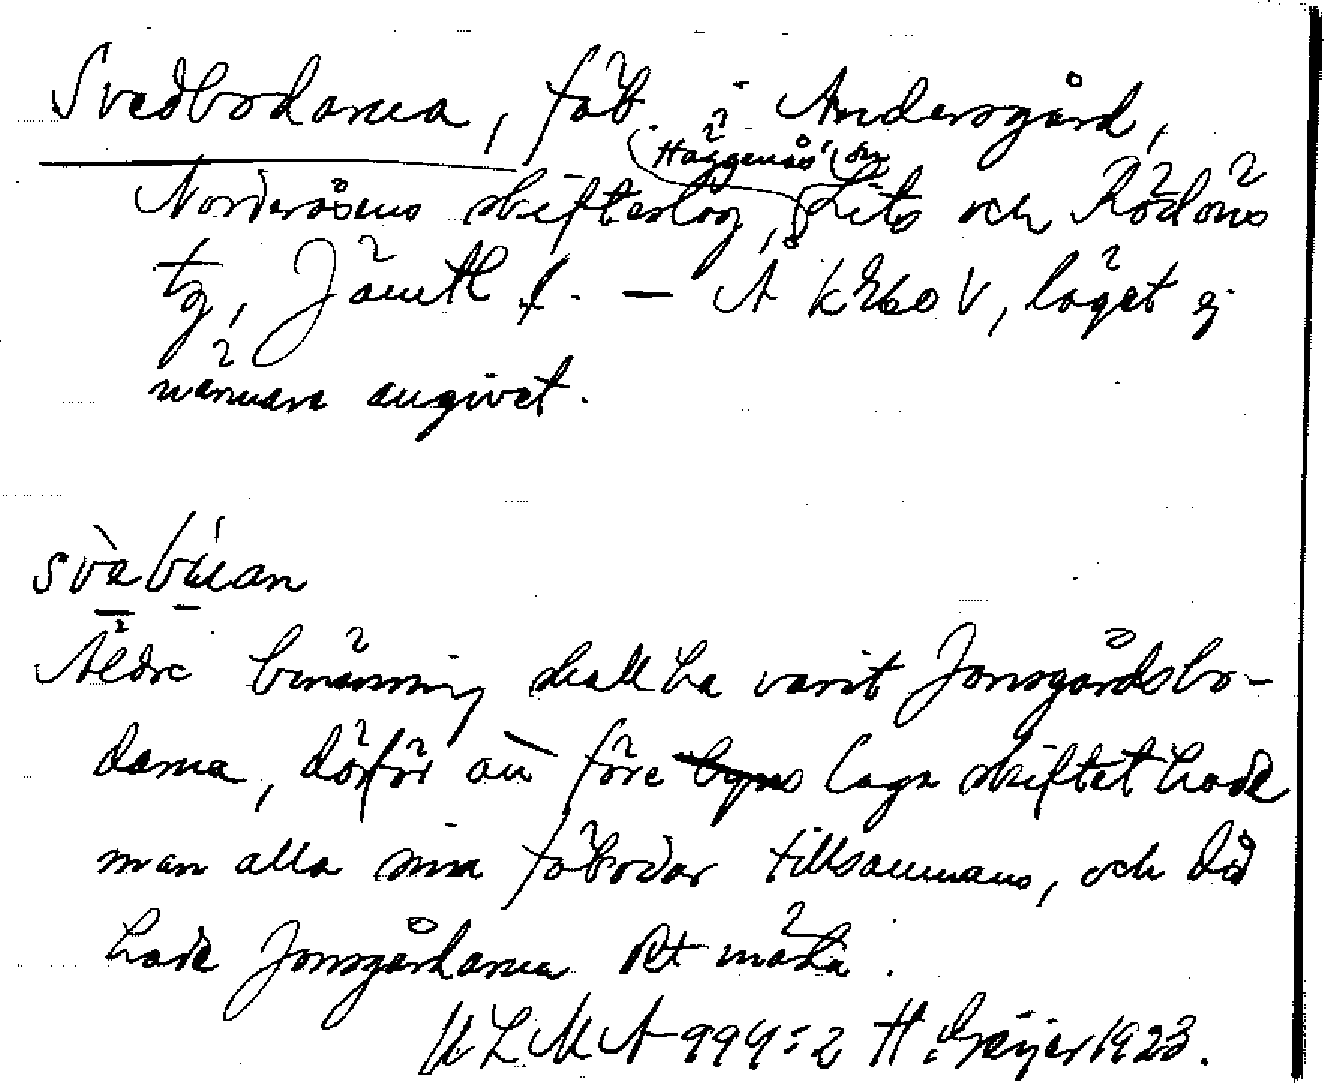 Svedbodarna, fäb. i Andersgård,
(Häggenås' sn
Norderåsens skifteslag, Lits och Rödöns
tg, Jämtl. l. — Å k 860 V, läget ej
närmare angivet.
svabúan
Äldre benämning skall ha varit Jonsgårdsbo-
darna, därför att före byns laga skiftet hade
man alla sina fäbodar tillsammans, och då
hade Jonsgårdarna det mästa.
ULMA 999:2 H. Geijer 1923.